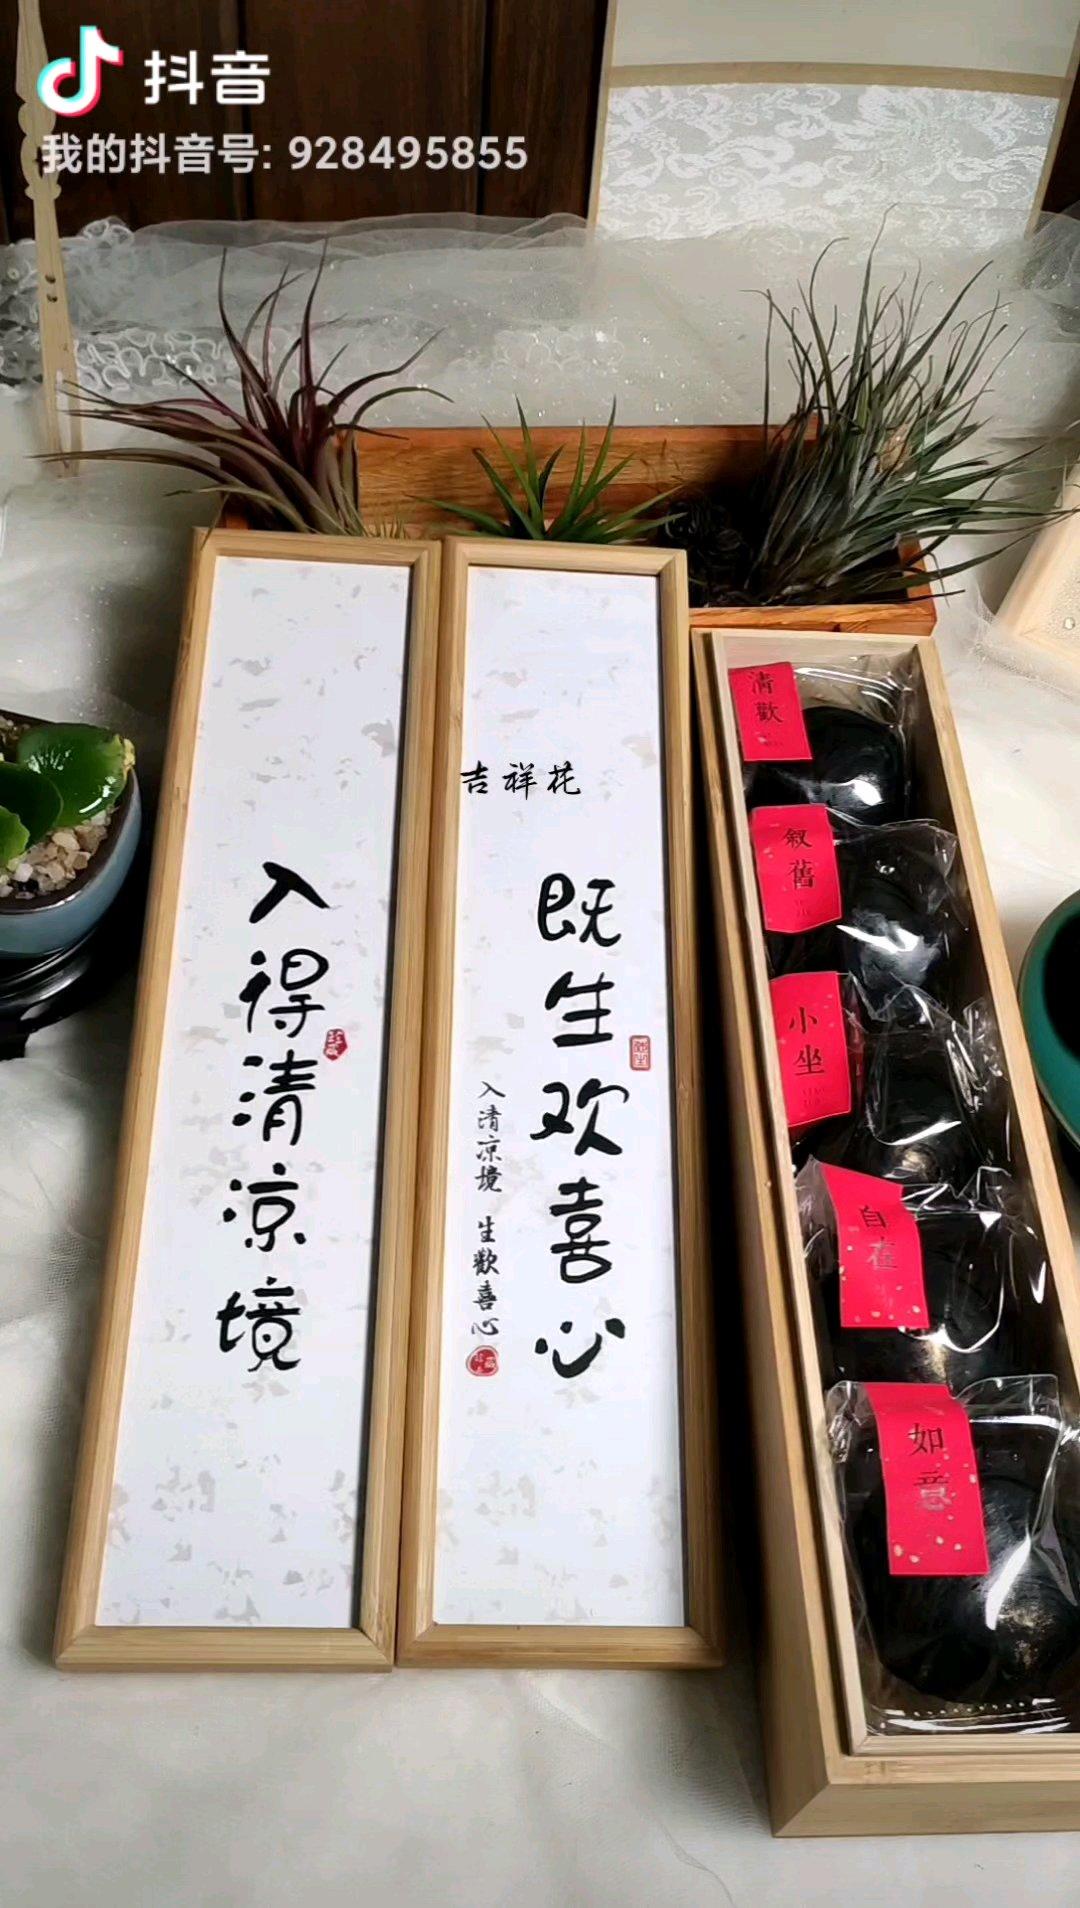 抖音
我的抖音号: 928495855
吉祥花
入得清凉境
既生欢喜心
入清凉境 生歡喜心
清歡
叙舊
小坐
自在
如意